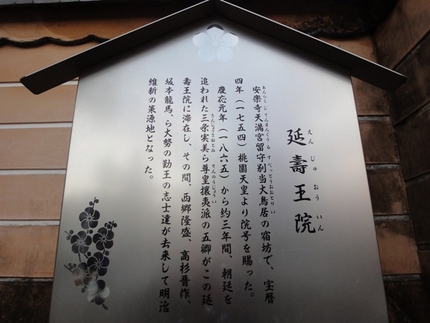 えん じゅ おう いん
延壽王院
安樂寺天満宮留守別当大鳥居の宿坊で、宝暦
四年(一七五四)桃園天皇より院号を賜った。
慶応元年(一八六五)から約三年間、朝廷を
追われた三条実美ら尊皇攘夷派の五卿がこの延
壽王院に滞在し、その間、西郷隆盛、高杉晋作、
坂本龍馬、ら大勢の勤王の志士達が去来して明治
維新の策源地となった。